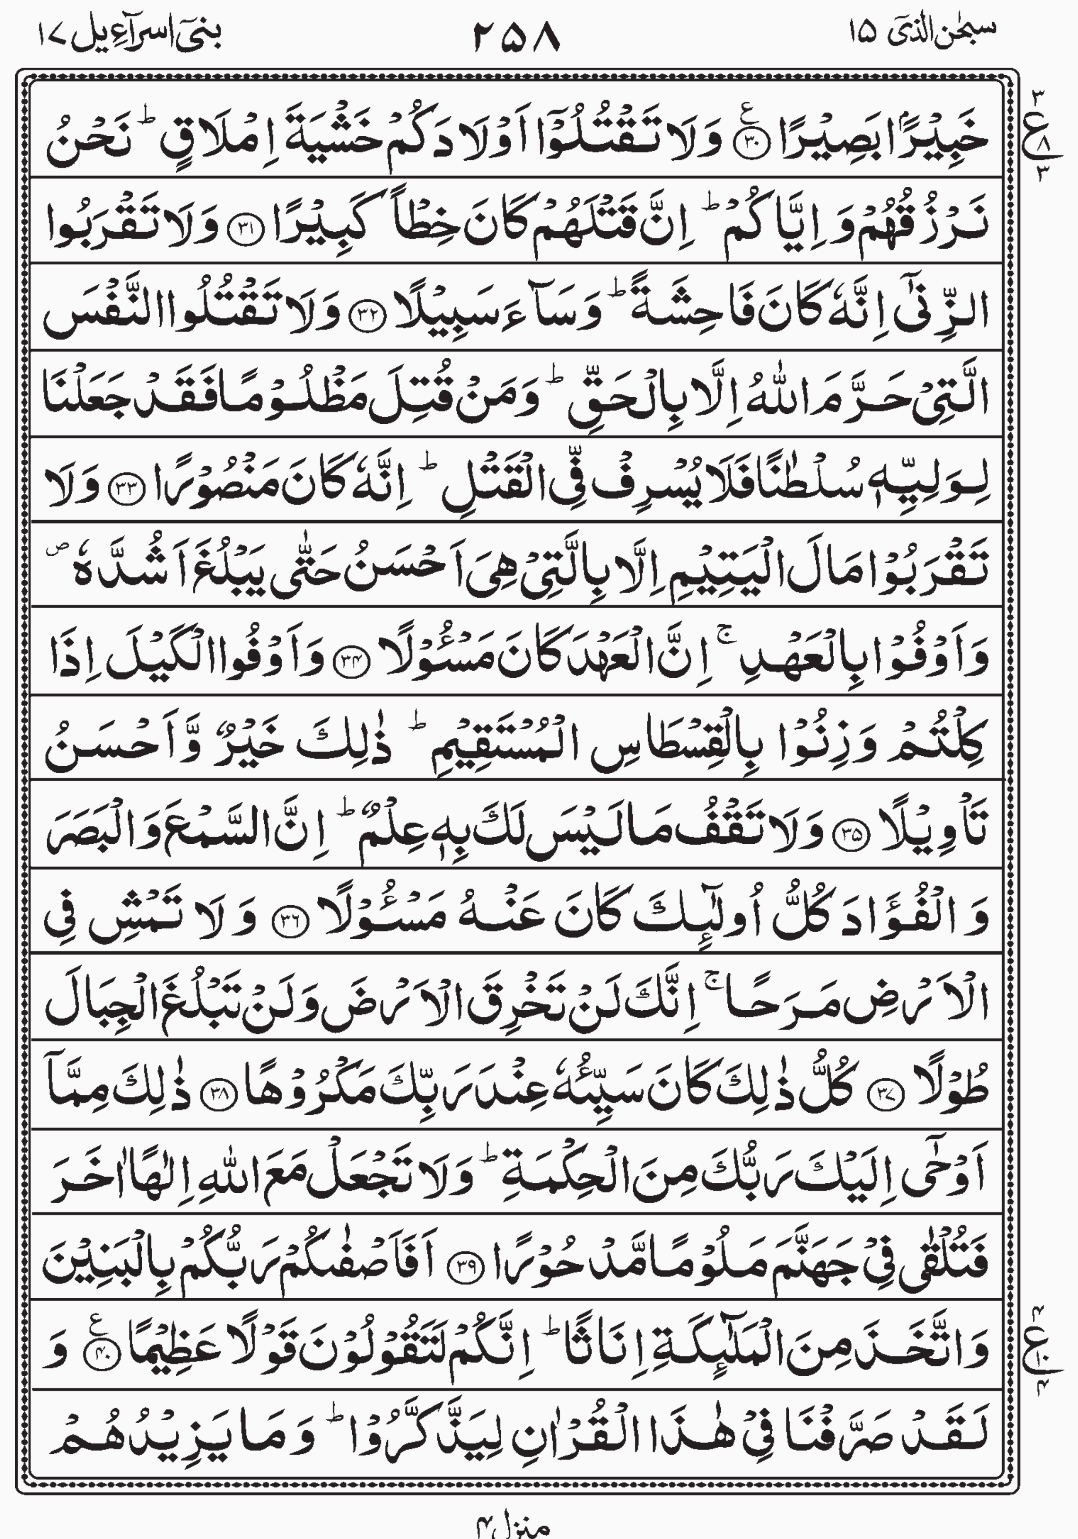 سبحٰن الذیٓ ۱۵
۲۵۸
بنیٓ اسرآءیل ۱۷
خَبِيْرًۢا بَصِيْرًا ۳۰ ع وَلَا تَقْتُلُوْۤا اَوْلَادَكُمْ خَشْيَةَ اِمْلَاقٍ ؕ نَحْنُ
۳ ع ۸ ۳
نَرْزُقُهُمْ وَ اِيَّاكُمْ ؕ اِنَّ قَتْلَهُمْ كَانَ خِطْاً كَبِيْرًا ۳۱ وَلَا تَقْرَبُوا
الزِّنٰۤى اِنَّهٗ كَانَ فَاحِشَةً ؕ وَسَآءَ سَبِيْلًا ۳۲ وَلَا تَقْتُلُوا النَّفْسَ
الَّتِىْ حَرَّمَ اللّٰهُ اِلَّا بِالْحَقِّ ؕ وَمَنْ قُتِلَ مَظْلُوْمًا فَقَدْ جَعَلْنَا
لِوَلِيِّهٖ سُلْطٰنًا فَلَا يُسْرِفْ فِّى الْقَتْلِ ؕ اِنَّهٗ كَانَ مَنْصُوْرًا ۳۳ وَلَا
تَقْرَبُوْا مَالَ الْيَتِيْمِ اِلَّا بِالَّتِىْ هِىَ اَحْسَنُ حَتّٰى يَبْلُغَ اَشُدَّهٗ ص
وَاَوْفُوْا بِالْعَهْدِ ۚ اِنَّ الْعَهْدَ كَانَ مَسْـُٔوْلًا ۳۴ وَاَوْفُوا الْكَيْلَ اِذَا
كِلْتُمْ وَزِنُوْا بِالْقِسْطَاسِ الْمُسْتَقِيْمِ ؕ ذٰلِكَ خَيْرٌ وَّاَحْسَنُ
تَاْوِيْلًا ۳۵ وَلَا تَقْفُ مَا لَيْسَ لَكَ بِهٖ عِلْمٌ ؕ اِنَّ السَّمْعَ وَالْبَصَرَ
وَالْفُؤَادَ كُلُّ اُولٰٓئِكَ كَانَ عَنْهُ مَسْـُٔوْلًا ۳۶ وَلَا تَمْشِ فِى
الْاَرْضِ مَرَحًا ۚ اِنَّكَ لَنْ تَخْرِقَ الْاَرْضَ وَلَنْ تَبْلُغَ الْجِبَالَ
طُوْلًا ۳۷ كُلُّ ذٰلِكَ كَانَ سَيِّئُهٗ عِنْدَ رَبِّكَ مَكْرُوْهًا ۳۸ ذٰلِكَ مِمَّاۤ
اَوْحٰۤى اِلَيْكَ رَبُّكَ مِنَ الْحِكْمَةِ ؕ وَلَا تَجْعَلْ مَعَ اللّٰهِ اِلٰهًا اٰخَرَ
فَتُلْقٰى فِىْ جَهَنَّمَ مَلُوْمًا مَّدْحُوْرًا ۳۹ اَفَاَصْفٰىكُمْ رَبُّكُمْ بِالْبَنِيْنَ
وَاتَّخَذَ مِنَ الْمَلٰٓئِكَةِ اِنَاثًا ؕ اِنَّكُمْ لَتَقُوْلُوْنَ قَوْلًا عَظِيْمًا ۴۰ ع وَ
۴ ع ۱۰ ۴
لَقَدْ صَرَّفْنَا فِىْ هٰذَا الْقُرْاٰنِ لِيَذَّكَّرُوْا ؕ وَمَا يَزِيْدُهُمْ
منزل ۴